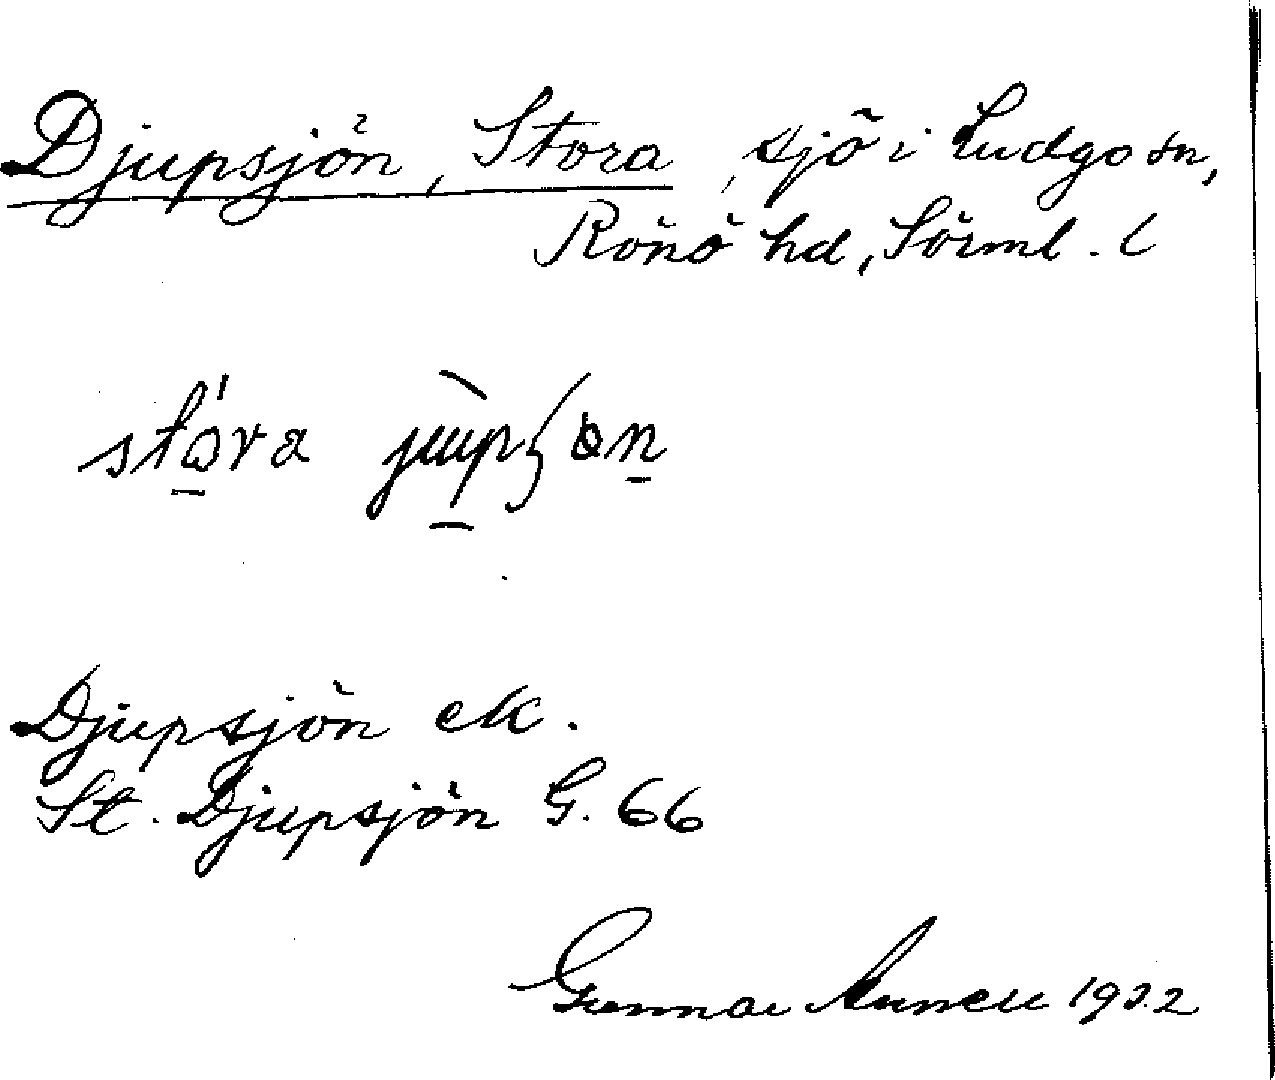 Djupsjön, Stora, sjö i Ludgo sn,
Rönö hd, Sörml. l
stora jupʃɵn
Djupsjön ek.
St. Djupsjön G. 66
Gunnar 1932